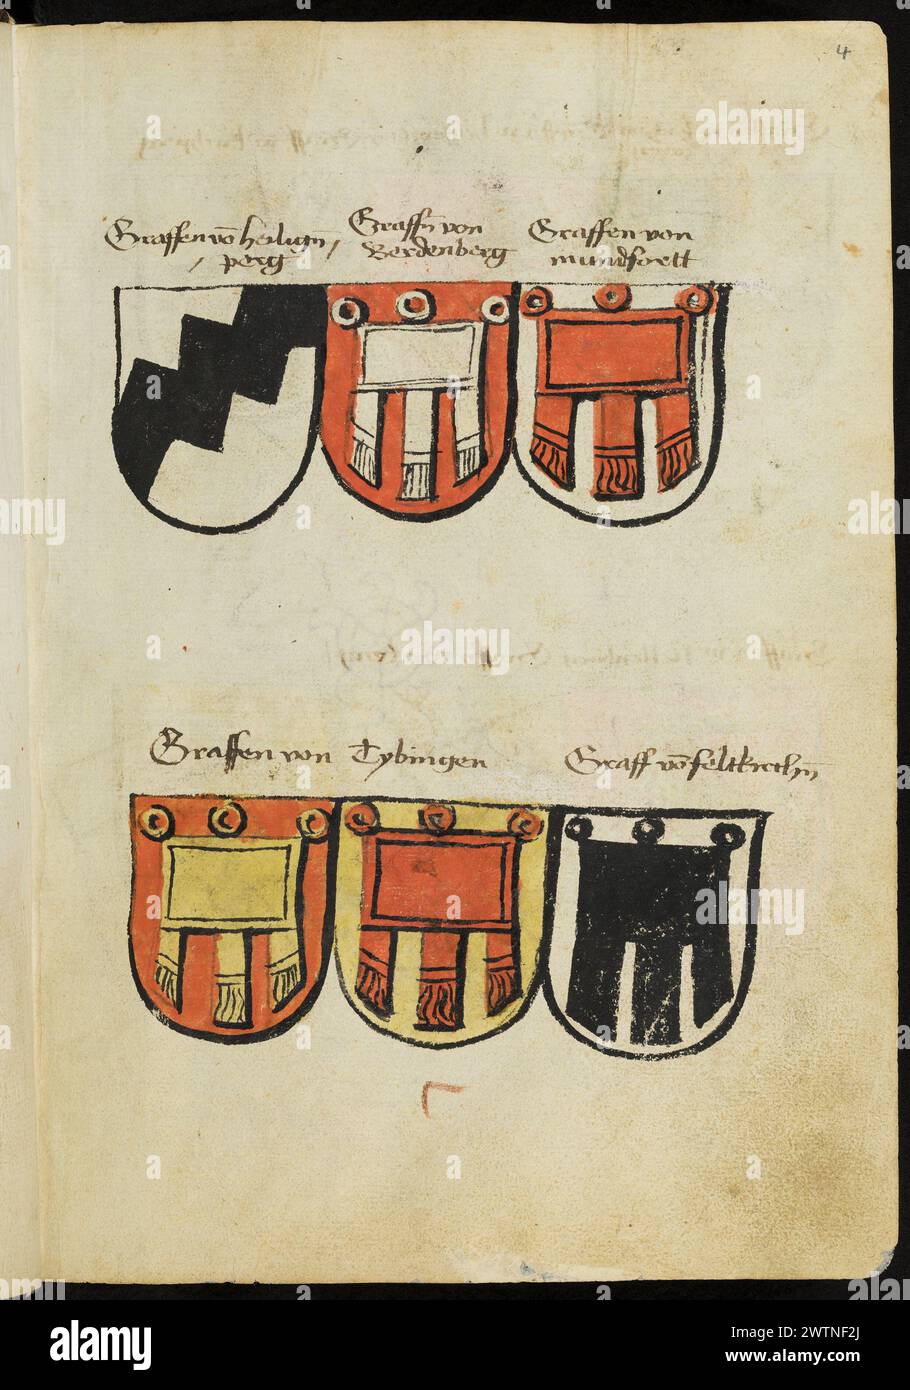 4
Graffen vō heilign̄ /
/ perg
Graffn̄ von
Werdenberg
Graffen von
mundfortt
Graffen von Tybingen
Graff vō feltkirchn̄
alamy
Image ID: 2WTNF2J
www.alamy.com